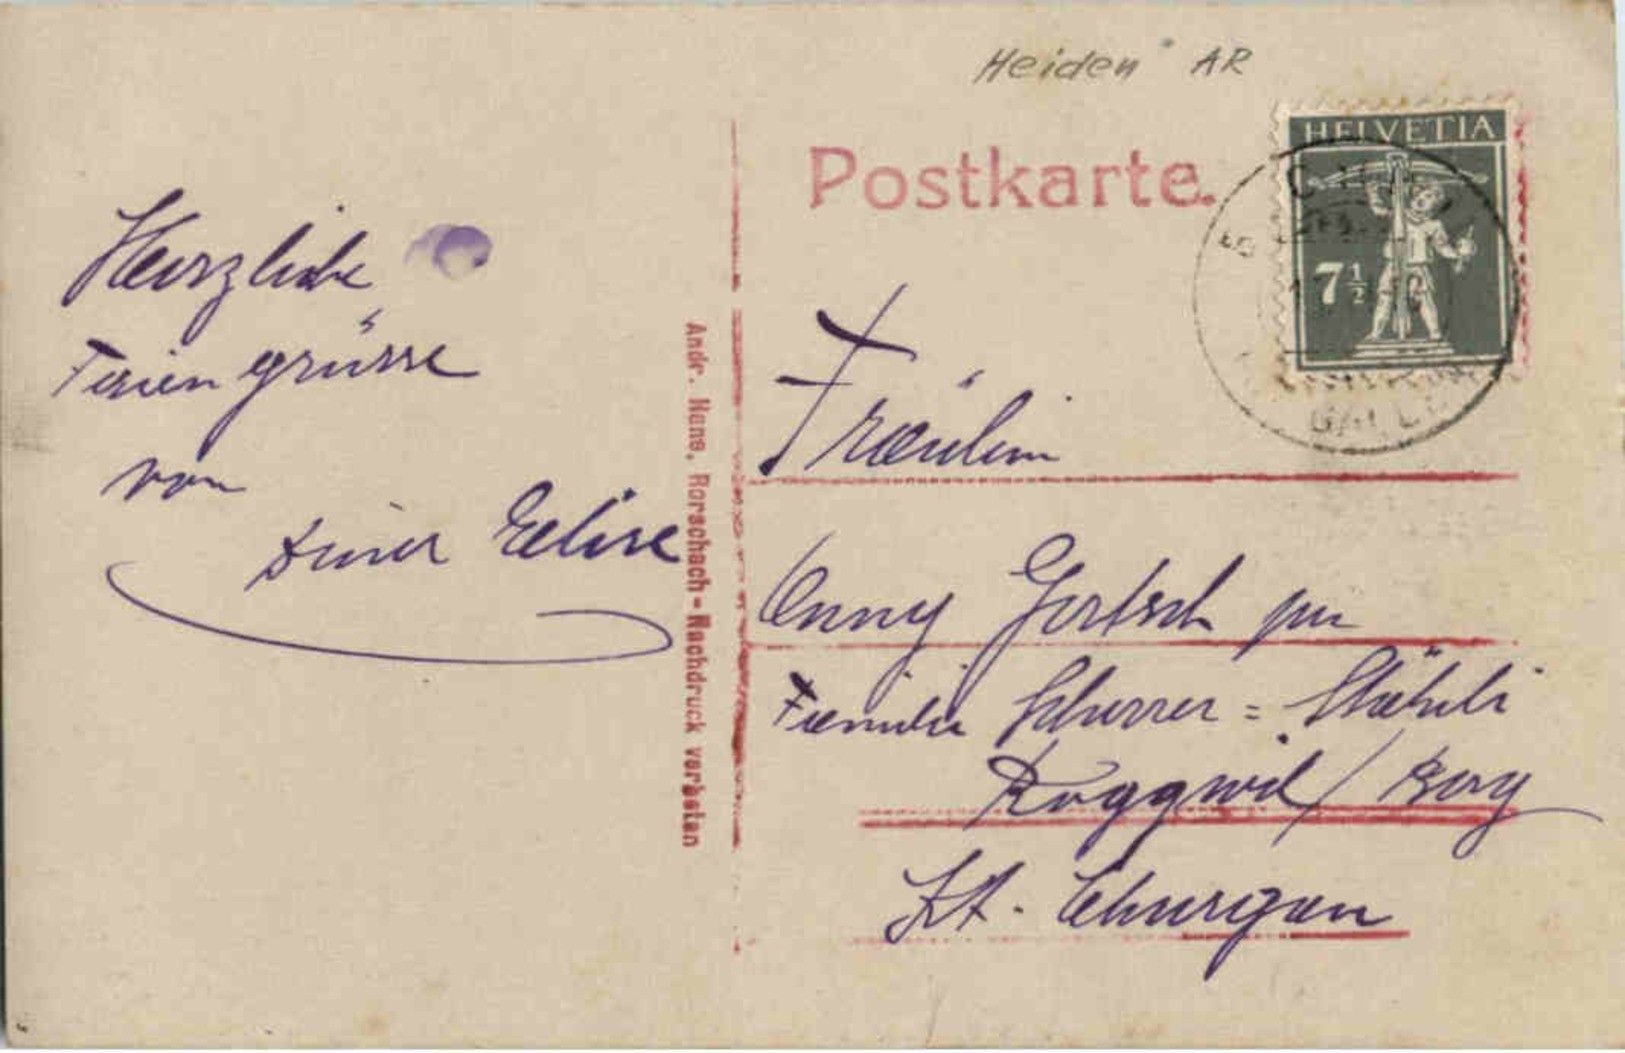 Heiden AR
Postkarte.
HELVETIA
7½
Herzliche
Feriengrüsse
von
deiner Elise
Andr. Hane, Rorschach - Nachdruck verboten
Fräulein
Familie Scherrer = Stäheli
Roggwil / Berg
Kt. Thurgau